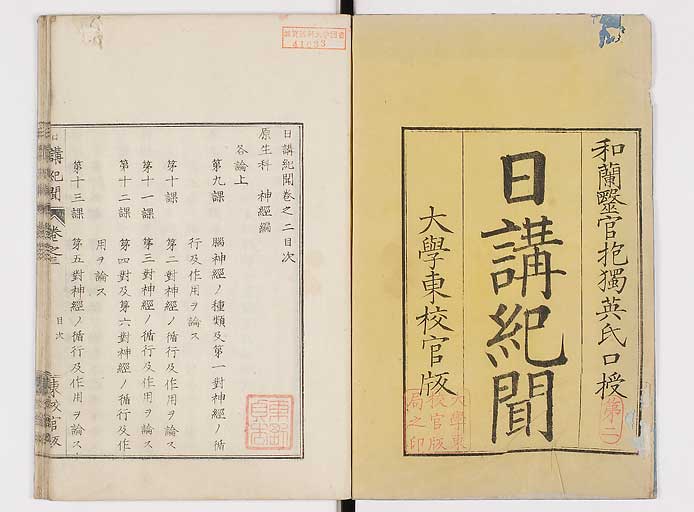 和蘭毉官抱獨英氏口授
第二
日講紀聞
大學東校官版
大學東
校官版
局之印
日講紀聞卷之二目次
原生科　神經編
各論上
第九課　腦神經ノ種類及第一對神經ノ循
行及作用ヲ論ス
第十課　第二對神經ノ循行及作用ヲ論ス
第十一課　第三對神經ノ循行及作用ヲ論ス
第十二課　第四對及第六對神經ノ循行及作
用ヲ論ス
第十三課　第五對神經ノ循行及作用ヲ論ス
講紀聞
卷之二
目次
東校官版
41633